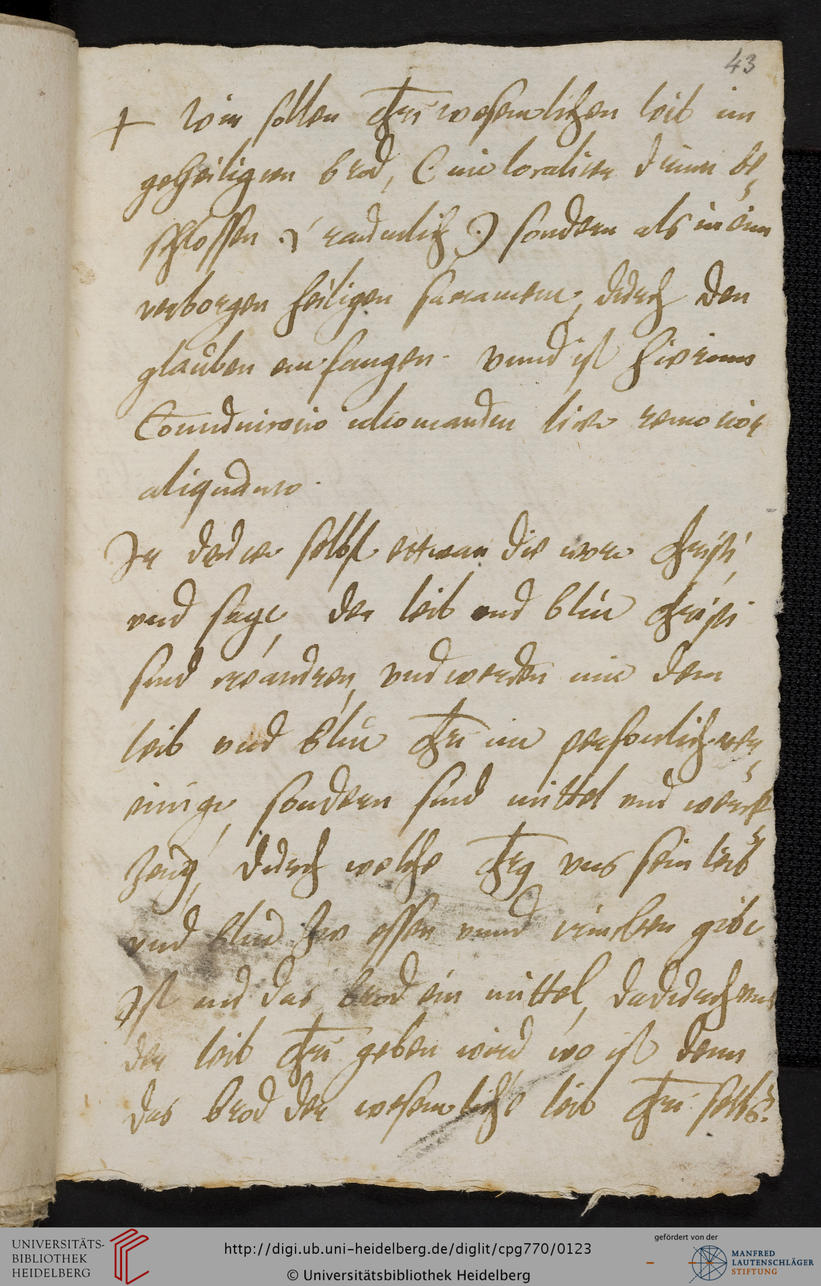 43
+ Wir sollen Chri wesentlichen leib im
geheiligten brod, (nit localiter drinn be¬
schlossen (räumlich)) sondern als in eim
verborgen heiligen sacrament, durch den
glauben emfangen. vnnd ist
Communicatio idiomatum
aliquanto.
Er selbst die wort Christi,
vnd sagt, der leib vnd blut Christi
sind vnd werden mit dem
leib vnd blut Chri nit persönlich ver¬
einigt, sondern sind mittel vnd werck¬
zeug, durch welche Chrs vns sein leib
vnd blud zw essen vnnd trincken gibt
Ist nud das brod ein mittel, dadurch vns
der leib Chri geben wird wo ist denn
das brod der wesentliche leib Chri selbs?
UNIVERSITÄTS-
BIBLIOTHEK
HEIDELBERG
http://digi.ub.uni-heidelberg.de/diglit/cpg770/0123
© Universitätsbibliothek Heidelberg
gefördert von der
MANFRED
LAUTENSCHLÄGER
STIFTUNG